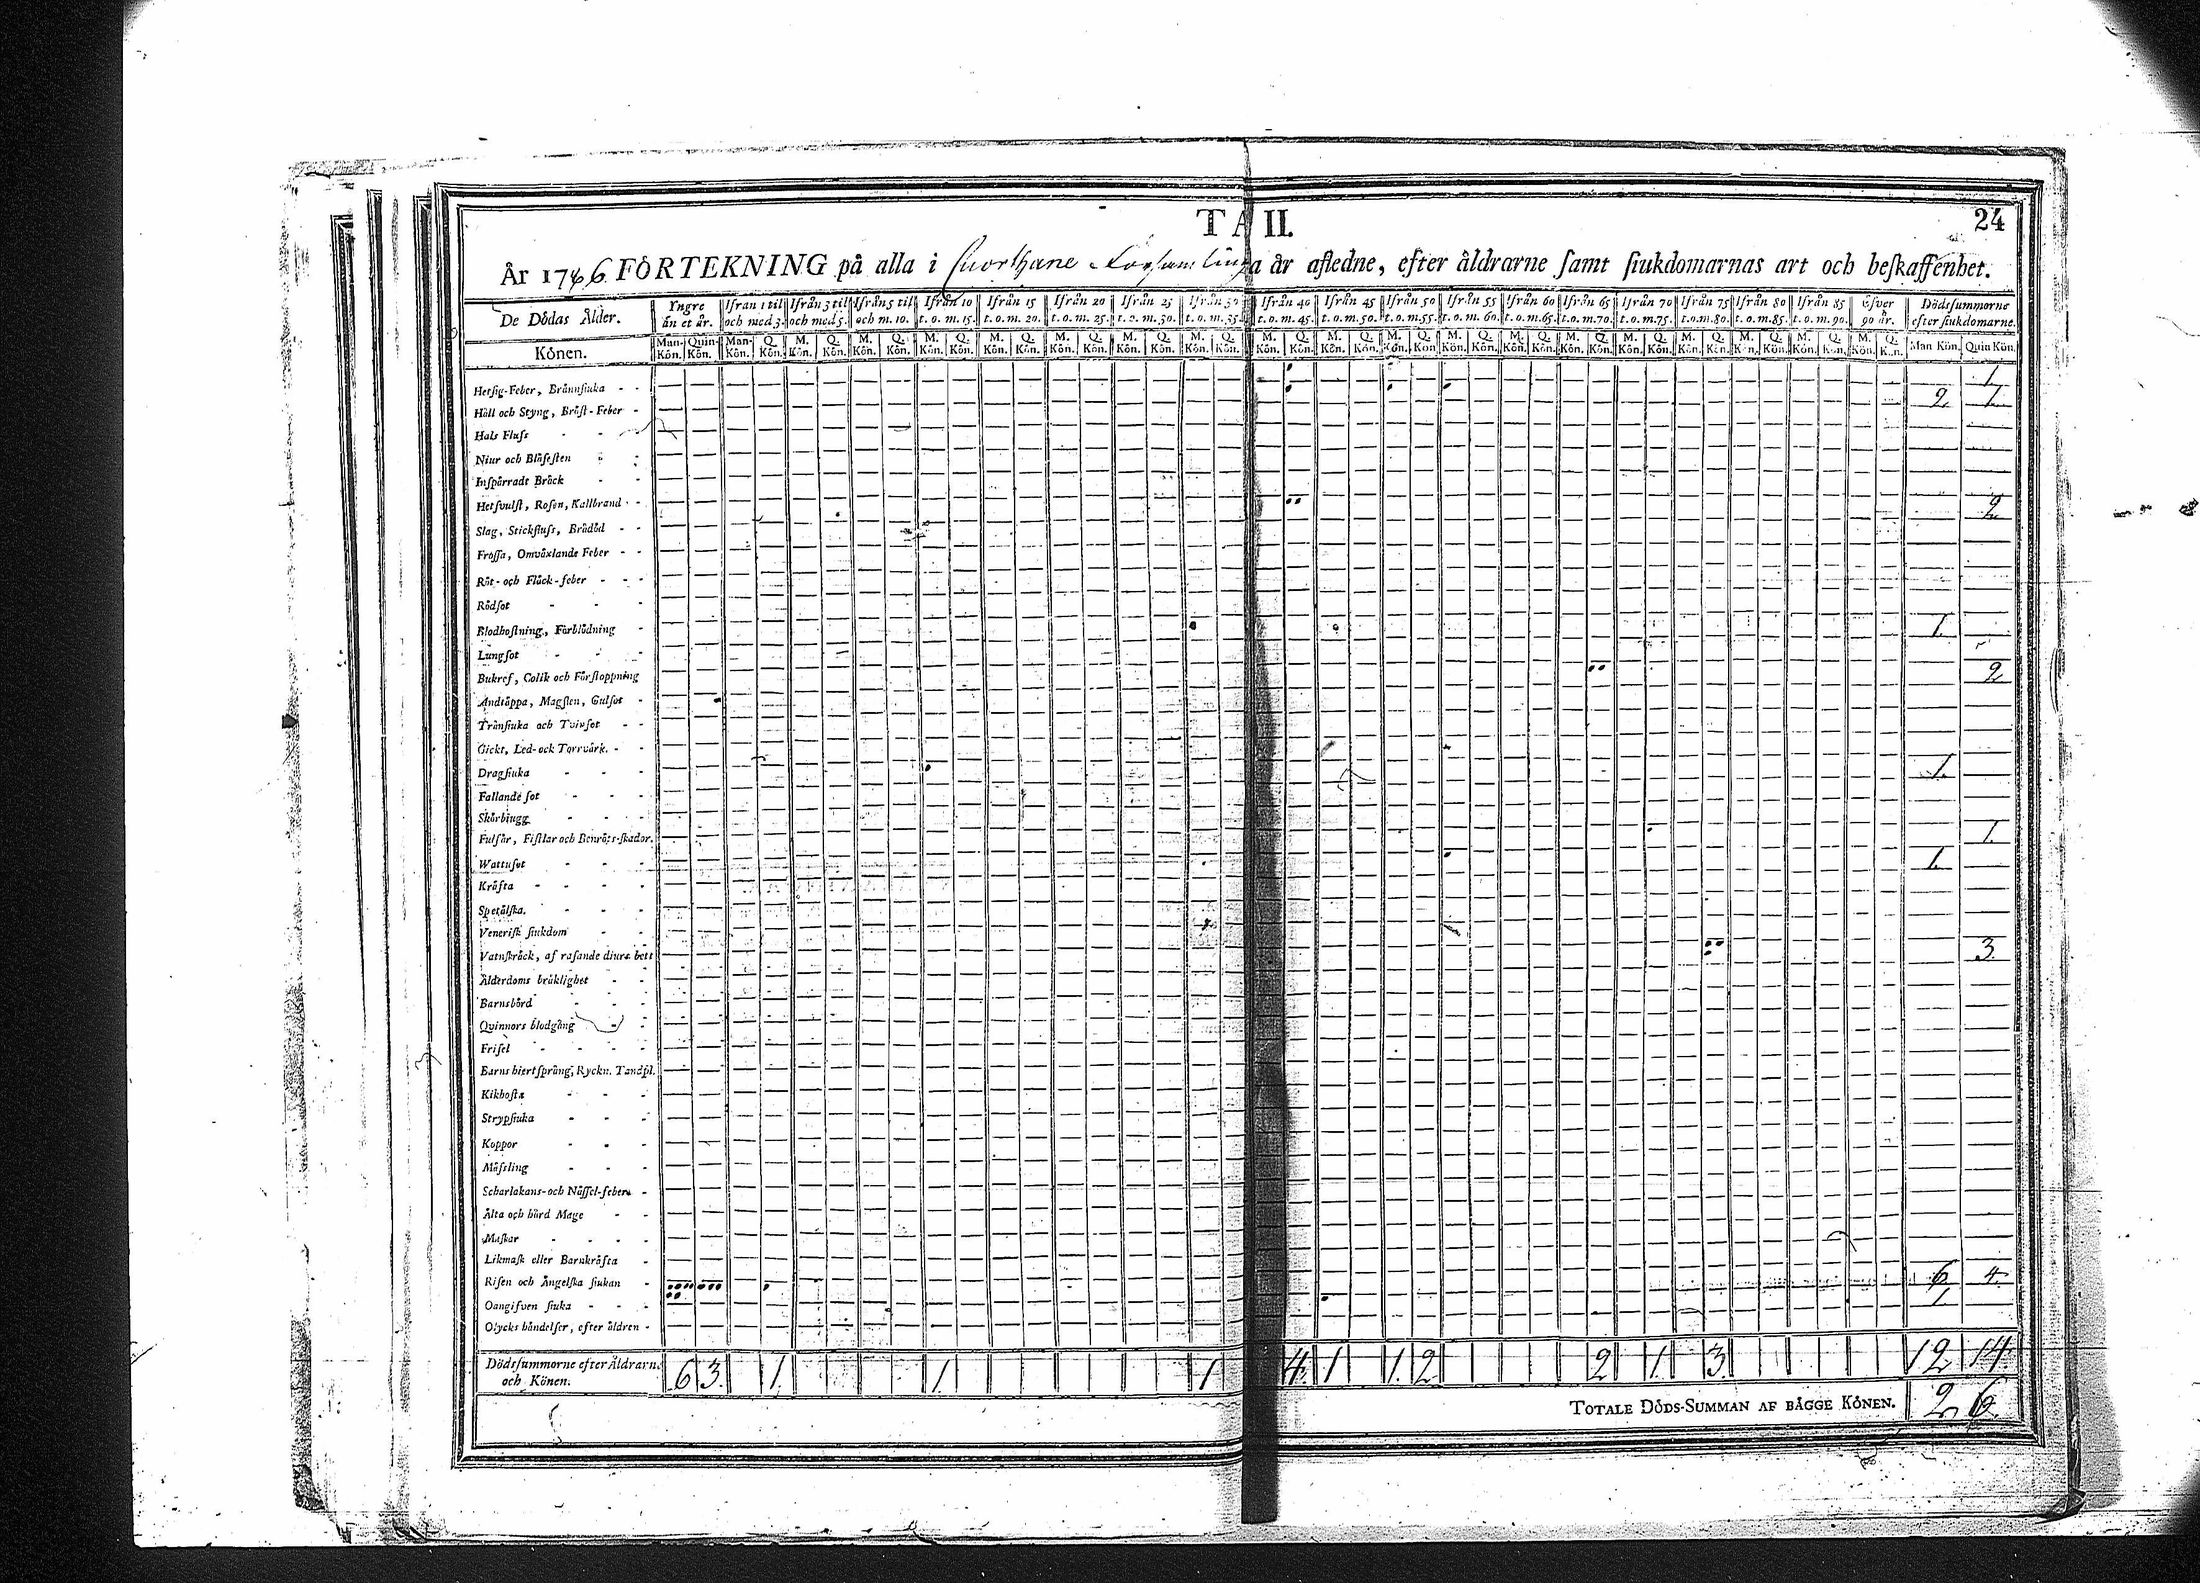 TA II.
24
År 1766 FÖRTEKNING på alla i Cuorthane Församling a år afledne, efter åldrarne samt siukdomarnas art och beskaffenhet.
De Dödas Ålder. Yngre än et år. Ifrån 1 til och med 3. Ifrån 3 til och med 5. Ifrån 5 til och m. 10. Ifrån 10 t. o. m. 15. Ifrån 15 t. o. m. 20. Ifrån 20 t. o. m. 25. Ifrån 25 t. o. m. 30. Ifrån 30 t. o. m. 35. Ifrån 40 t. o. m. 45. Ifrån 45 t. o. m. 50. Ifrån 50 t. o. m. 55. Ifrån 55 t. o. m. 60. Ifrån 60 t. o. m. 65. Ifrån 65 t. o. m. 70. Ifrån 70 t. o. m. 75. Ifrån 75 t. o. m. 80. Ifrån 80 t. o. m. 85. Ifrån 85 t. o. m. 90. Öfver 90 år. Dödssummorne efter siukdomarne.
Könen. Man-Kön. Quin-Kön. Man-Kön. Q. Kön. M. Kön. Q. Kön. M. Kön. Q. Kön. M. Kön. Q. Kön. M. Kön. Q. Kön. M. Kön. Q. Kön. M. Kön. Q. Kön. M. Kön. Q. Kön. M. Kön. Q. Kön. M. Kön. Q. Kön. M. Kön. Q. Kön. M. Kön. Q. Kön. M. Kön. Q. Kön. M. Kön. Q. Kön. M. Kön. Q. Kön. M. Kön. Q. Kön. M. Kön. Q. Kön. M. Kön. Q. Kön. M. Kön. Q. Kön. Man Kön. Quin Kön.
Hetsig-Feber, Brännsiuka 1.
Håll och Styng, Bråst-Feber 2. 1.
Hals Fluss
Niur och Blåsesten
Inspärradt Bråck
Hetsvulst, Rosen, Kallbrand 2.
Slag, Stickfluss, Brådöd
Frossa, Omväxlande Feber
Röt- och Fläck-feber
Rödsot
Blodhostning, Förblödning 1.
Lungsot
Bukref, Colik och Förstoppning 2
Andtäppa, Magsten, Gulsot
Trånsiuka och Tvinsot
Gickt, Led- ock Torrvärk.
Dragsiuka 1.
Fallande sot
Skörbiugg
Fulsår, Fistlar och Benröts-skador. 1.
Wattusot 1.
Kräfta
Spetälska.
Venerisk siukdom
Vatnskräck, af rasande diurs bett 3.
Ålderdoms bräklighet
Barnsbörd
Qvinnors blodgång
Frisel
Barns hiertsprång, Ryckn. Tandpl.
Kikhosta
Strypsiuka
Koppor
Mässling
Scharlakans- och Nässel-feber
Älta och hård Mage
Maskar
Likmask eller Barnkräfta
Risen och Ängelska siukan 6 4.
Oangifven siuka 1
Olycks händelser, efter åldren
Dödssummorne efter Åldrarne och Könen. 6 3. 1. 1. 1 4. 1 1. 2 2 1. 3. 12 14.
TOTALE DÖDS-SUMMAN AF BÄGGE KÖNEN. 26.